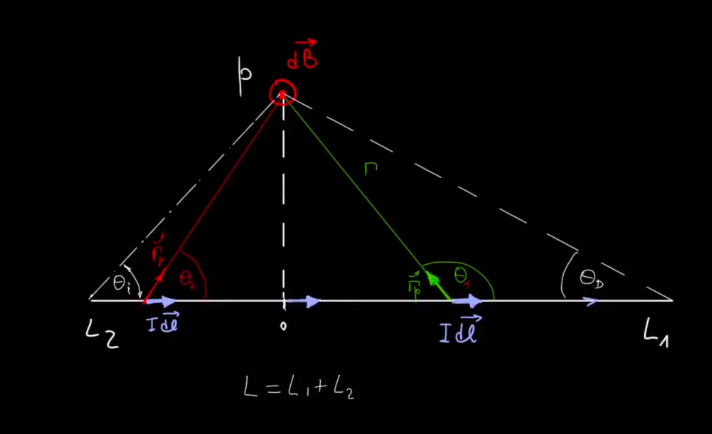 p
dB⃗
r
r⃗p
θi
θ2
r⃗p
θ1
θD
L2
I dl⃗
o
I dl⃗
L1
L = L1 + L2